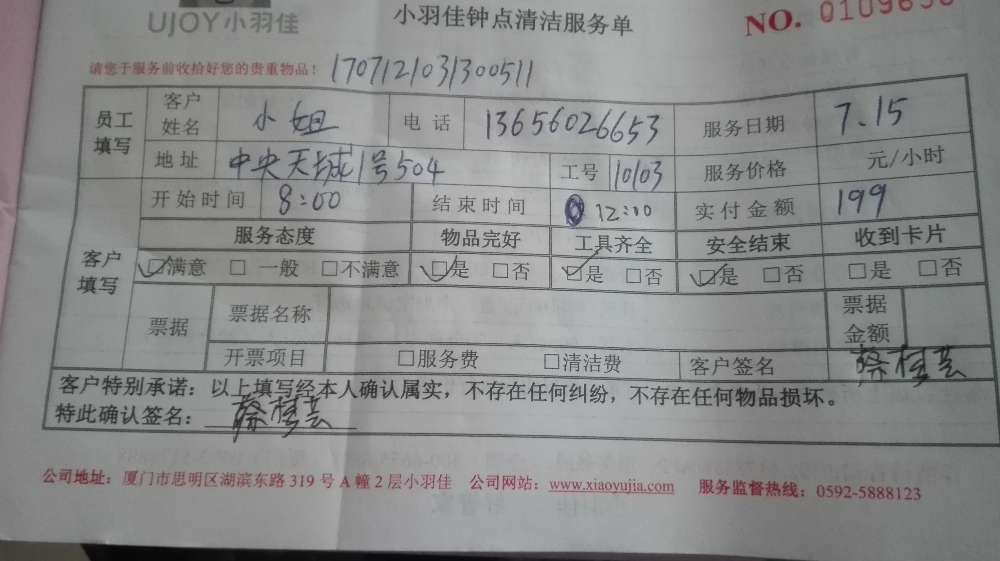 UJOY小羽佳 小羽佳钟点清洁服务单 NO. 0109650
请您于服务前收拾好您的贵重物品! 1707121031300511
员工填写 客户姓名 小姐 电话 13656026653 服务日期 7.15
地址 中央天城1号504 工号 10103 服务价格 元/小时
客户填写 开始时间 8:00 结束时间 12:00 实付金额 199
服务态度 物品完好 工具齐全 安全结束 收到卡片
☑满意 □一般 □不满意 ☑是 □否 ☑是 □否 ☑是 □否 □是 □否
票据 票据名称 票据金额
开票项目 □服务费 □清洁费 客户签名 蔡桂芸
客户特别承诺:以上填写经本人确认属实,不存在任何纠纷,不存在任何物品损坏。
特此确认签名: 蔡桂芸
公司地址:厦门市思明区湖滨东路319号A幢2层小羽佳 公司网站:www.xiaoyujia.com 服务监督热线:0592-5888123